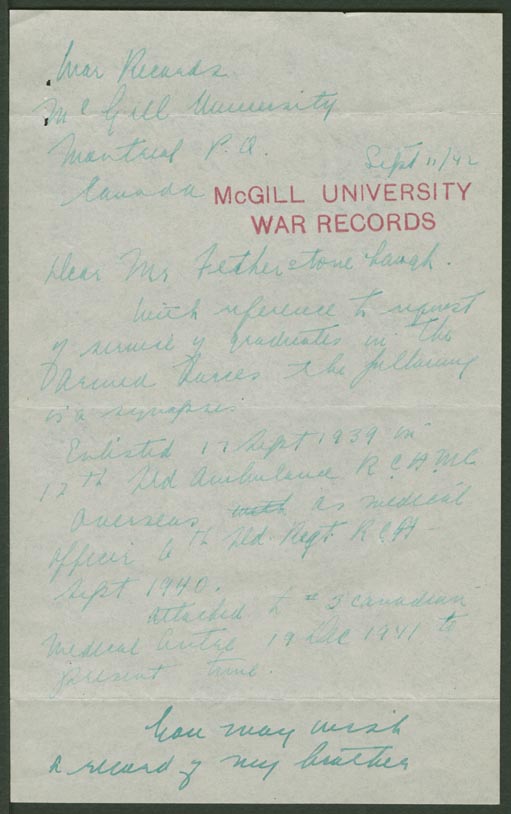 War Records
McGill University
Montreal P.Q.
Sept 11/42
Canada
McGILL UNIVERSITY
WAR RECORDS
Dear Mr Fetherstonehaugh.
With reference to request
of service of graduates in the
Armed Forces the following
is a synopses
Enlisted 17 Sept 1939 in
12th Fld Ambulance R.C.A.M.C.
Overseas with as medical
officer 6th Fld. Regt. R.C.A -
Sept 1940.
attached to # 3 Canadian
Medical Centre 19 Dec 1941 to
present time.
You may wish
a record of my brother